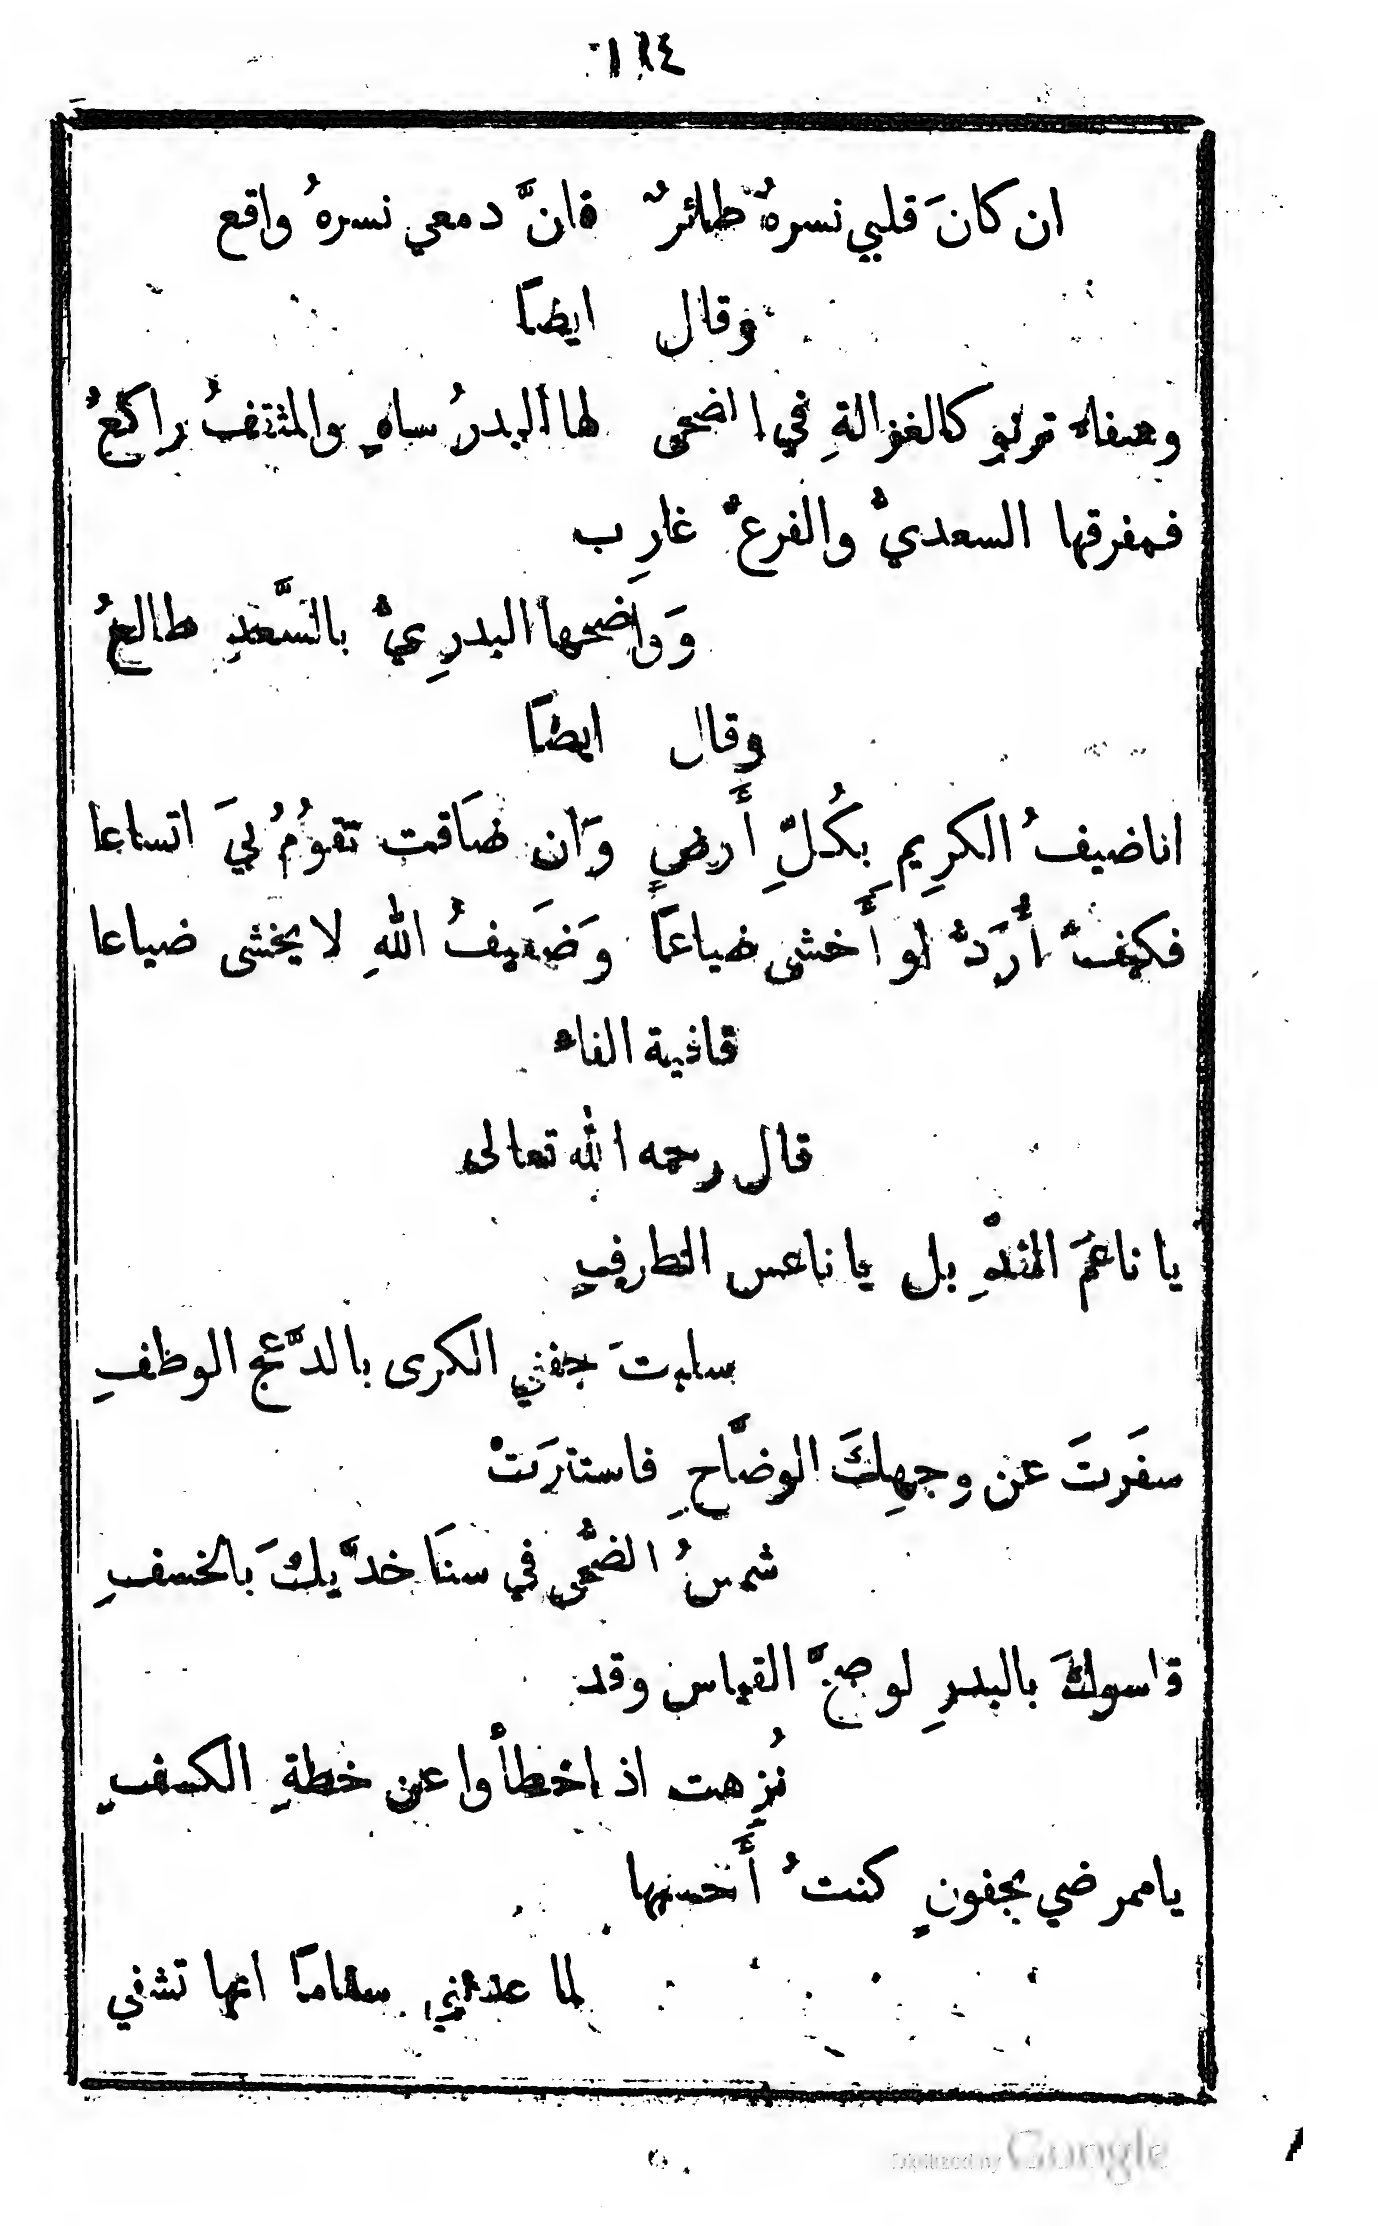 ان كانَ قلبي نسرهُ طائرٌ فانَّ دمعي نسرهُ واقع
وقال ايضاً
وهيفاء ترنو كالغزالةِ في الضحى لها البدرُ ساهٍ والمثقفُ راكعُ
فمفرقها السعديُّ والفرعُ غارِب
وَواضحها البدرِيُّ بالسَّعدِ طالعُ
وقال ايضاً
انا ضيفُ الكرِيمِ بِكُلِّ أَرضٍ وَان ضاقت تقومُ لِيَ اتساعا
فكيفَ أُرَدُّ او أَخشى ضياعاً وَضَيفُ اللهِ لا يخشى ضياعا
قافية الفاء
قال رحمه الله تعالى
يا ناعمَ القدِّ بل يا ناعس الطرفِ
سلبتَ جفني الكرى بالدَّعج الوظفِ
سفَرتَ عن وجهِكَ الوضَّاحِ فاستترَتْ
شمسُ الضُّحى في سنَا خدَّيكَ بالخسفِ
قاسوكَ بالبدرِ لو صحَّ القياس وقد
نُزِهت اذ اخطأوا عن خطةِ الكسفِ
يا ممرضي بجفونٍ كنتُ أَحسبها
لما عدمني سقاماً انها تشفي
Digitized by Google